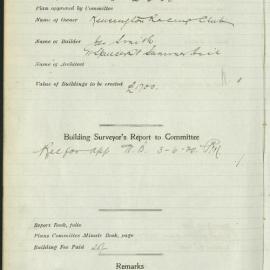 Plan approved by Committee
Name of Owner Kensington Racing Club
Name of Builder Smith
Name of Architect
Value of Buildings to be erected £1700.
Building Surveyor's Report to Committee
Rec for app 3-6-20
Report Book, folio
Plans Committee Minute Book, page
Building Fee Paid
Remarks